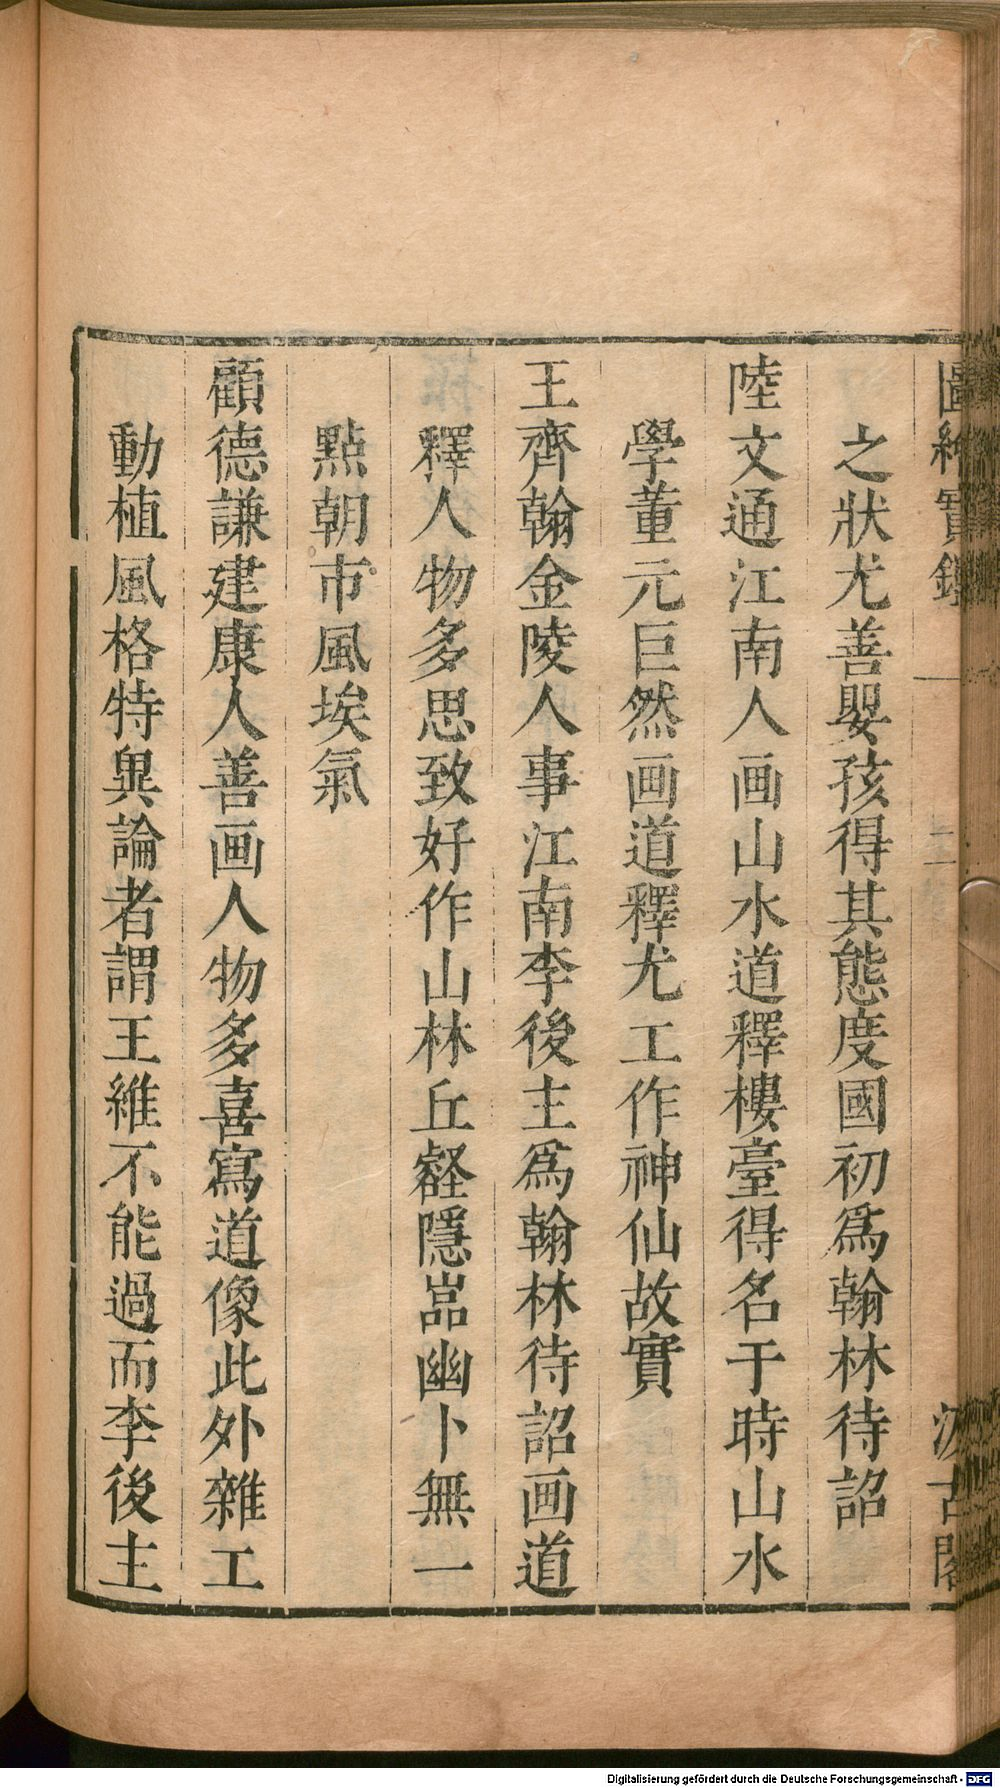 圖繪寶鑑 二 汲古閣
之狀尤善嬰孩得其態度國初爲翰林待詔
陸文通江南人画山水道釋樓臺得名于時山水
學董元巨然画道釋尤工作神仙故實
王齊翰金陵人事江南李後主爲翰林待詔画道
釋人物多思致好作山林丘壑隱嵓幽卜無一
點朝市風埃氣
顧德謙建康人善画人物多喜寫道像此外雜工
動植風格特異論者謂王維不能過而李後主
Digitalisierung gefördert durch die Deutsche Forschungsgemeinschaft - DFG